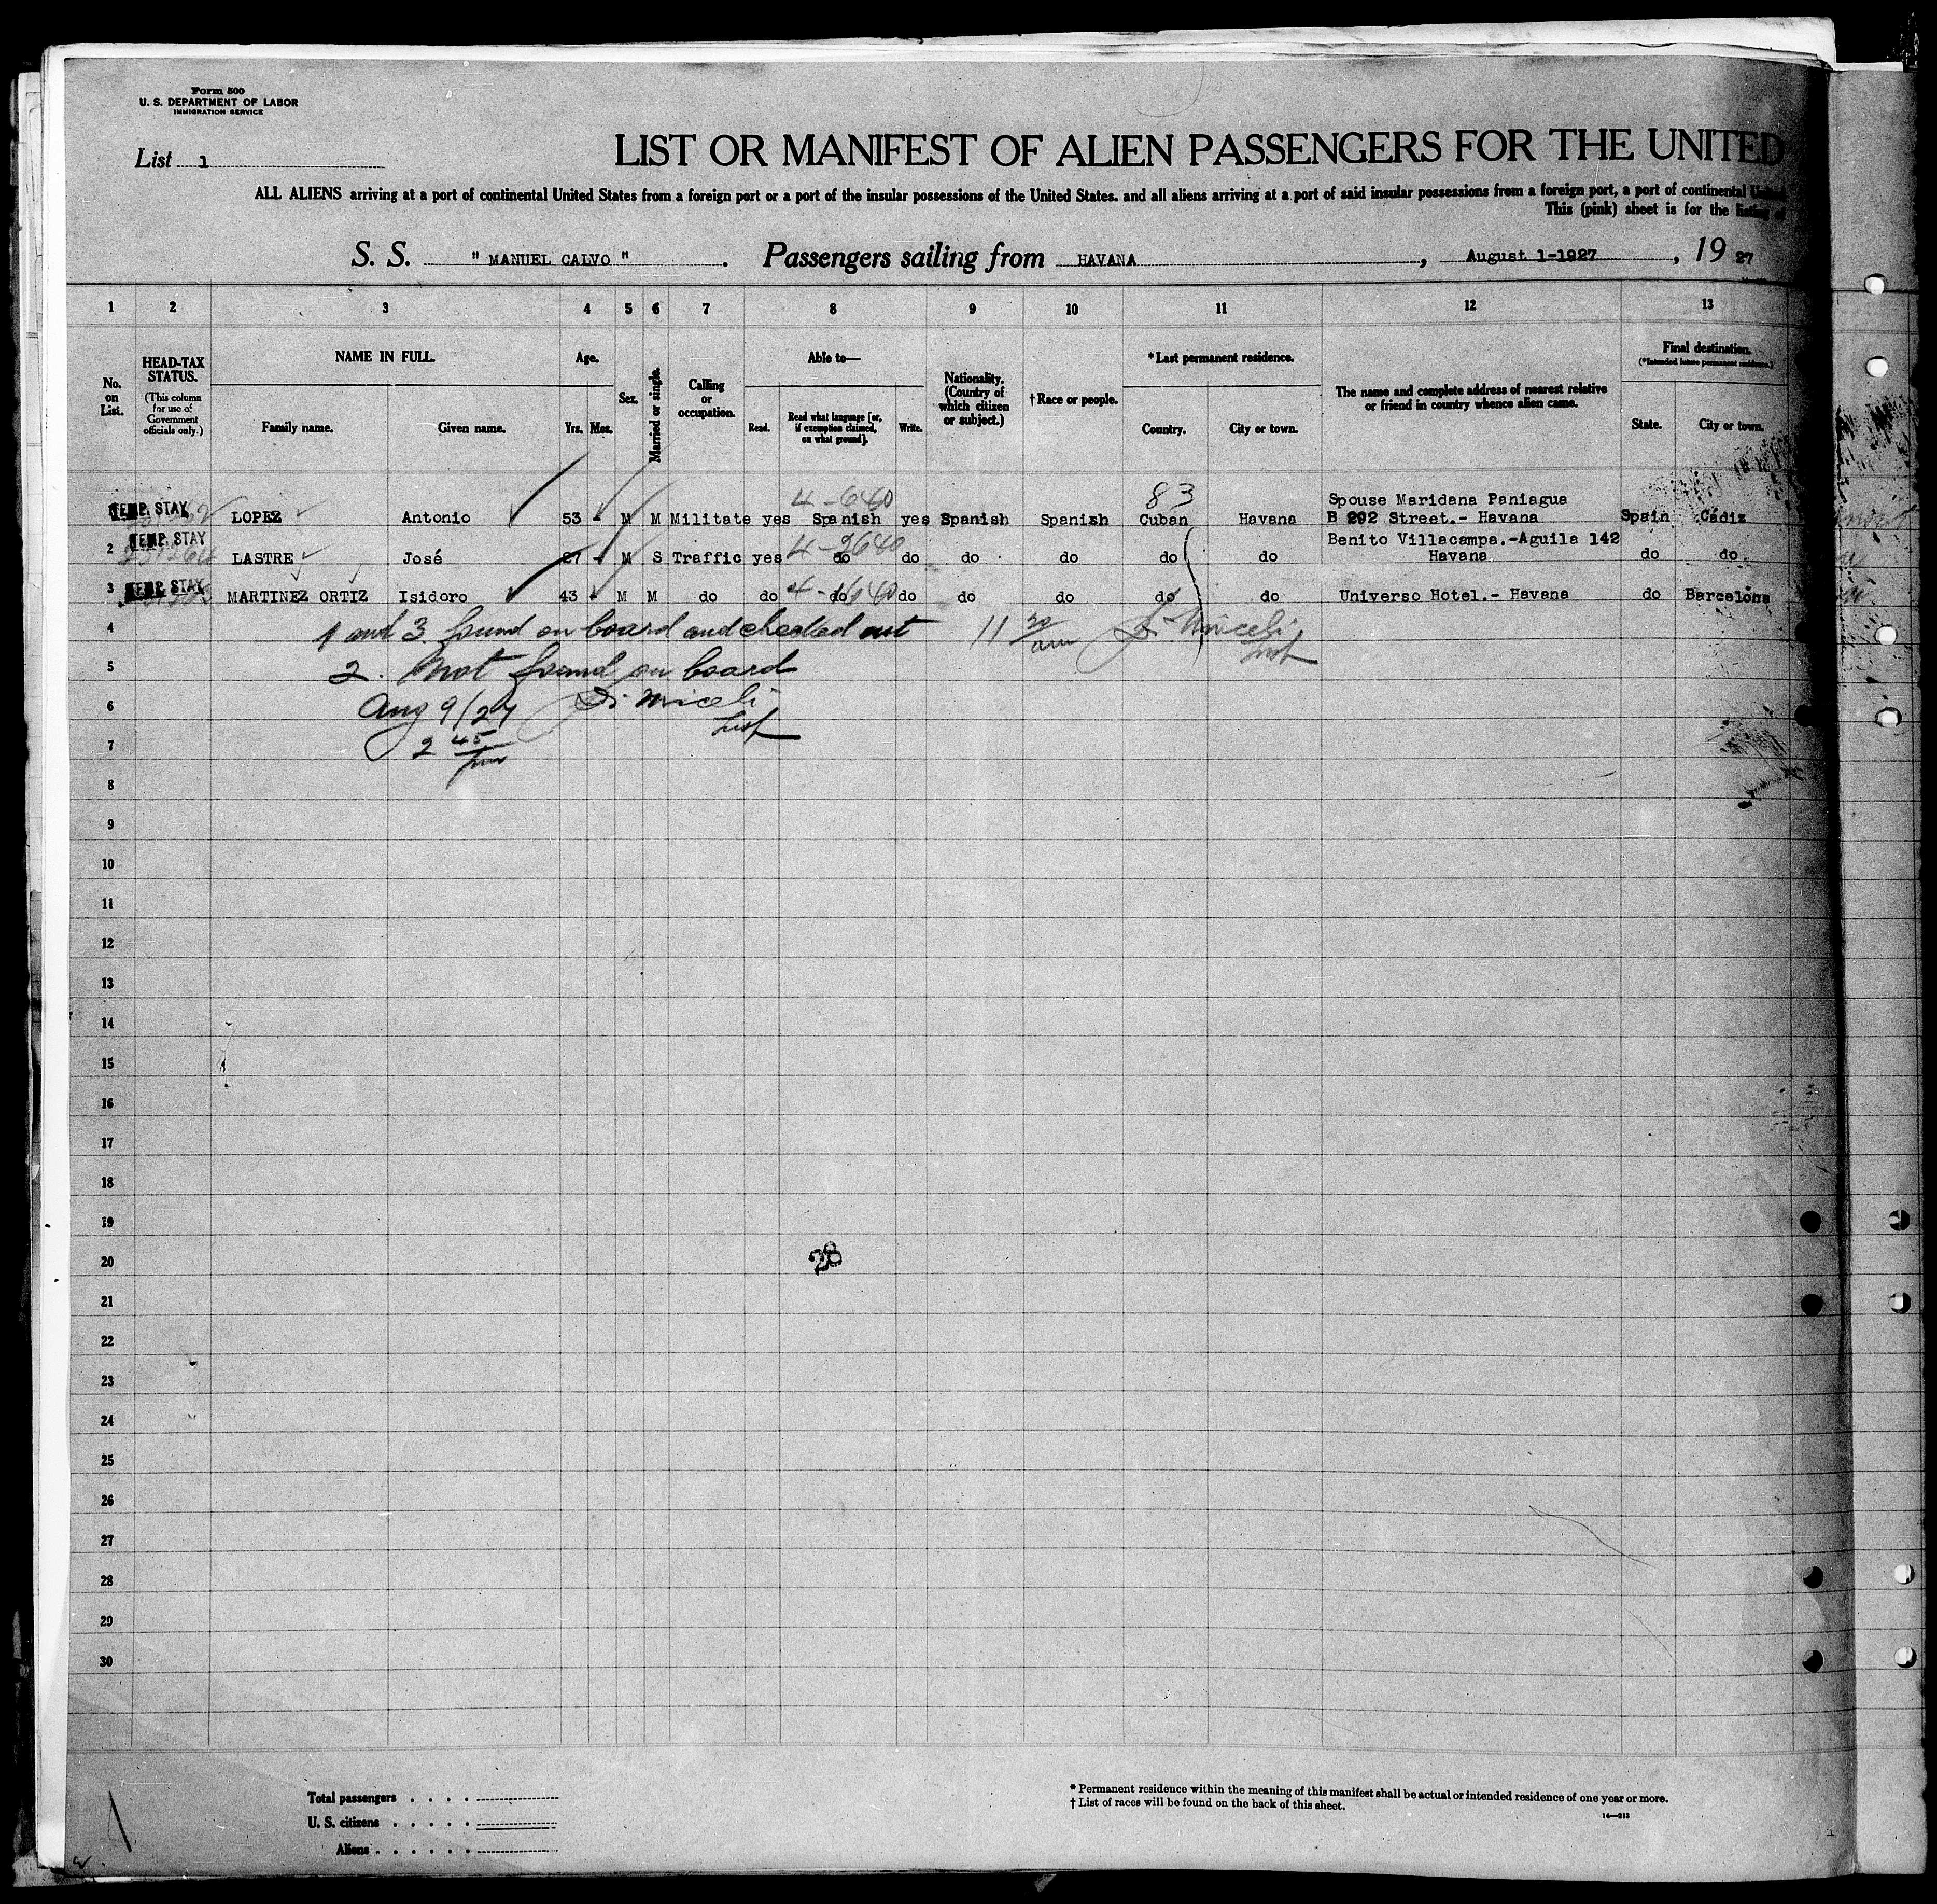 Form 500
U. S. DEPARTMENT OF LABOR
IMMIGRATION SERVICE
List 1
LIST OR MANIFEST OF ALIEN PASSENGERS FOR THE UNITED
ALL ALIENS arriving at a port of continental United States from a foreign port or a port of the insular possessions of the United States. and all aliens arriving at a port of said insular possessions from a foreign port, a port of continental United
This (pink) sheet is for the listing of
S. S. " MANUEL CALVO " . Passengers sailing from HAVANA , August 1-1927 , 19 27
1 2 3 4 5 6 7 8 9 10 11 12 13
No. on List.
HEAD-TAX STATUS.
(This column for use of Government officials only.)
NAME IN FULL.
Family name. Given name.
Age.
Yrs. Mos.
Sex.
Married or single.
Calling or occupation.
Able to—
Read. Read what language [or, if exemption claimed, on what ground]. Write.
Nationality. (Country of which citizen or subject.)
†Race or people.
*Last permanent residence.
Country. City or town.
The name and complete address of nearest relative or friend in country whence alien came.
Final destination.
(*Intended future permanent residence.)
State. City or town.
4-640 83 Spouse Maridana Paniagua
TEMP. STAY LOPEZ Antonio 53 - M M Militate yes Spanish yes Spanish Spanish Cuban Havana B 292 Street.- Havana Spain Cádiz
TEMP. STAY Benito Villacampa.-Aguila 142
2 LASTRE José 27 - M S Traffic yes do do do do do do Havana do do
3 TEMP. STAY MARTINEZ ORTIZ Isidoro 43 - M M do do do do do do do do Universo Hotel.- Havana do Barcelona
4 1 and 3 found on board and checked out 11 30 am
5 2. Not found on board
6 Aug 9/27
7 2 45 pm
8
9
10
11
12
13
14
15
16
17
18
19
20 28
21
22
23
24
25
26
27
28
29
30
Total passengers
U. S. citizens
Aliens
* Permanent residence within the meaning of this manifest shall be actual or intended residence of one year or more.
† List of races will be found on the back of this sheet.
14—213